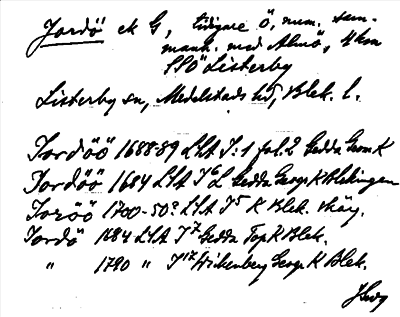 Jordö ek G, tidigare ö, num. sam-
manh. med Almö, 4 km
SSO Listerby
Listerby sn, Medelstads hd, Blek. l.
Jordöö 1688-89 LSA I:1 fol. 2 Gedda Geom K
Jordöö 1684 LSA I 6 L Gedda Geogr K Blekingen
Joröö 1700-50? LSA I 5 K Blek.
Jordö 1684 LSA I 7 Gedda Top K Blek.
" 1790 " I 17 Wikenberg Geogr K Blek.